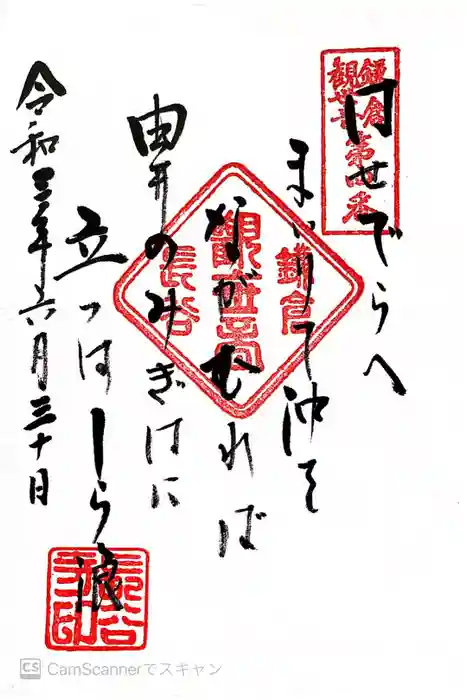 はせでらへ
まいりて沖を
ながむれば
由井のみぎはに
立つはしら浪
令和三年六月三十日
鎌倉
観世音
第四番
鎌倉
観世音
長谷
長谷
寺印
CS CamScannerでスキャン